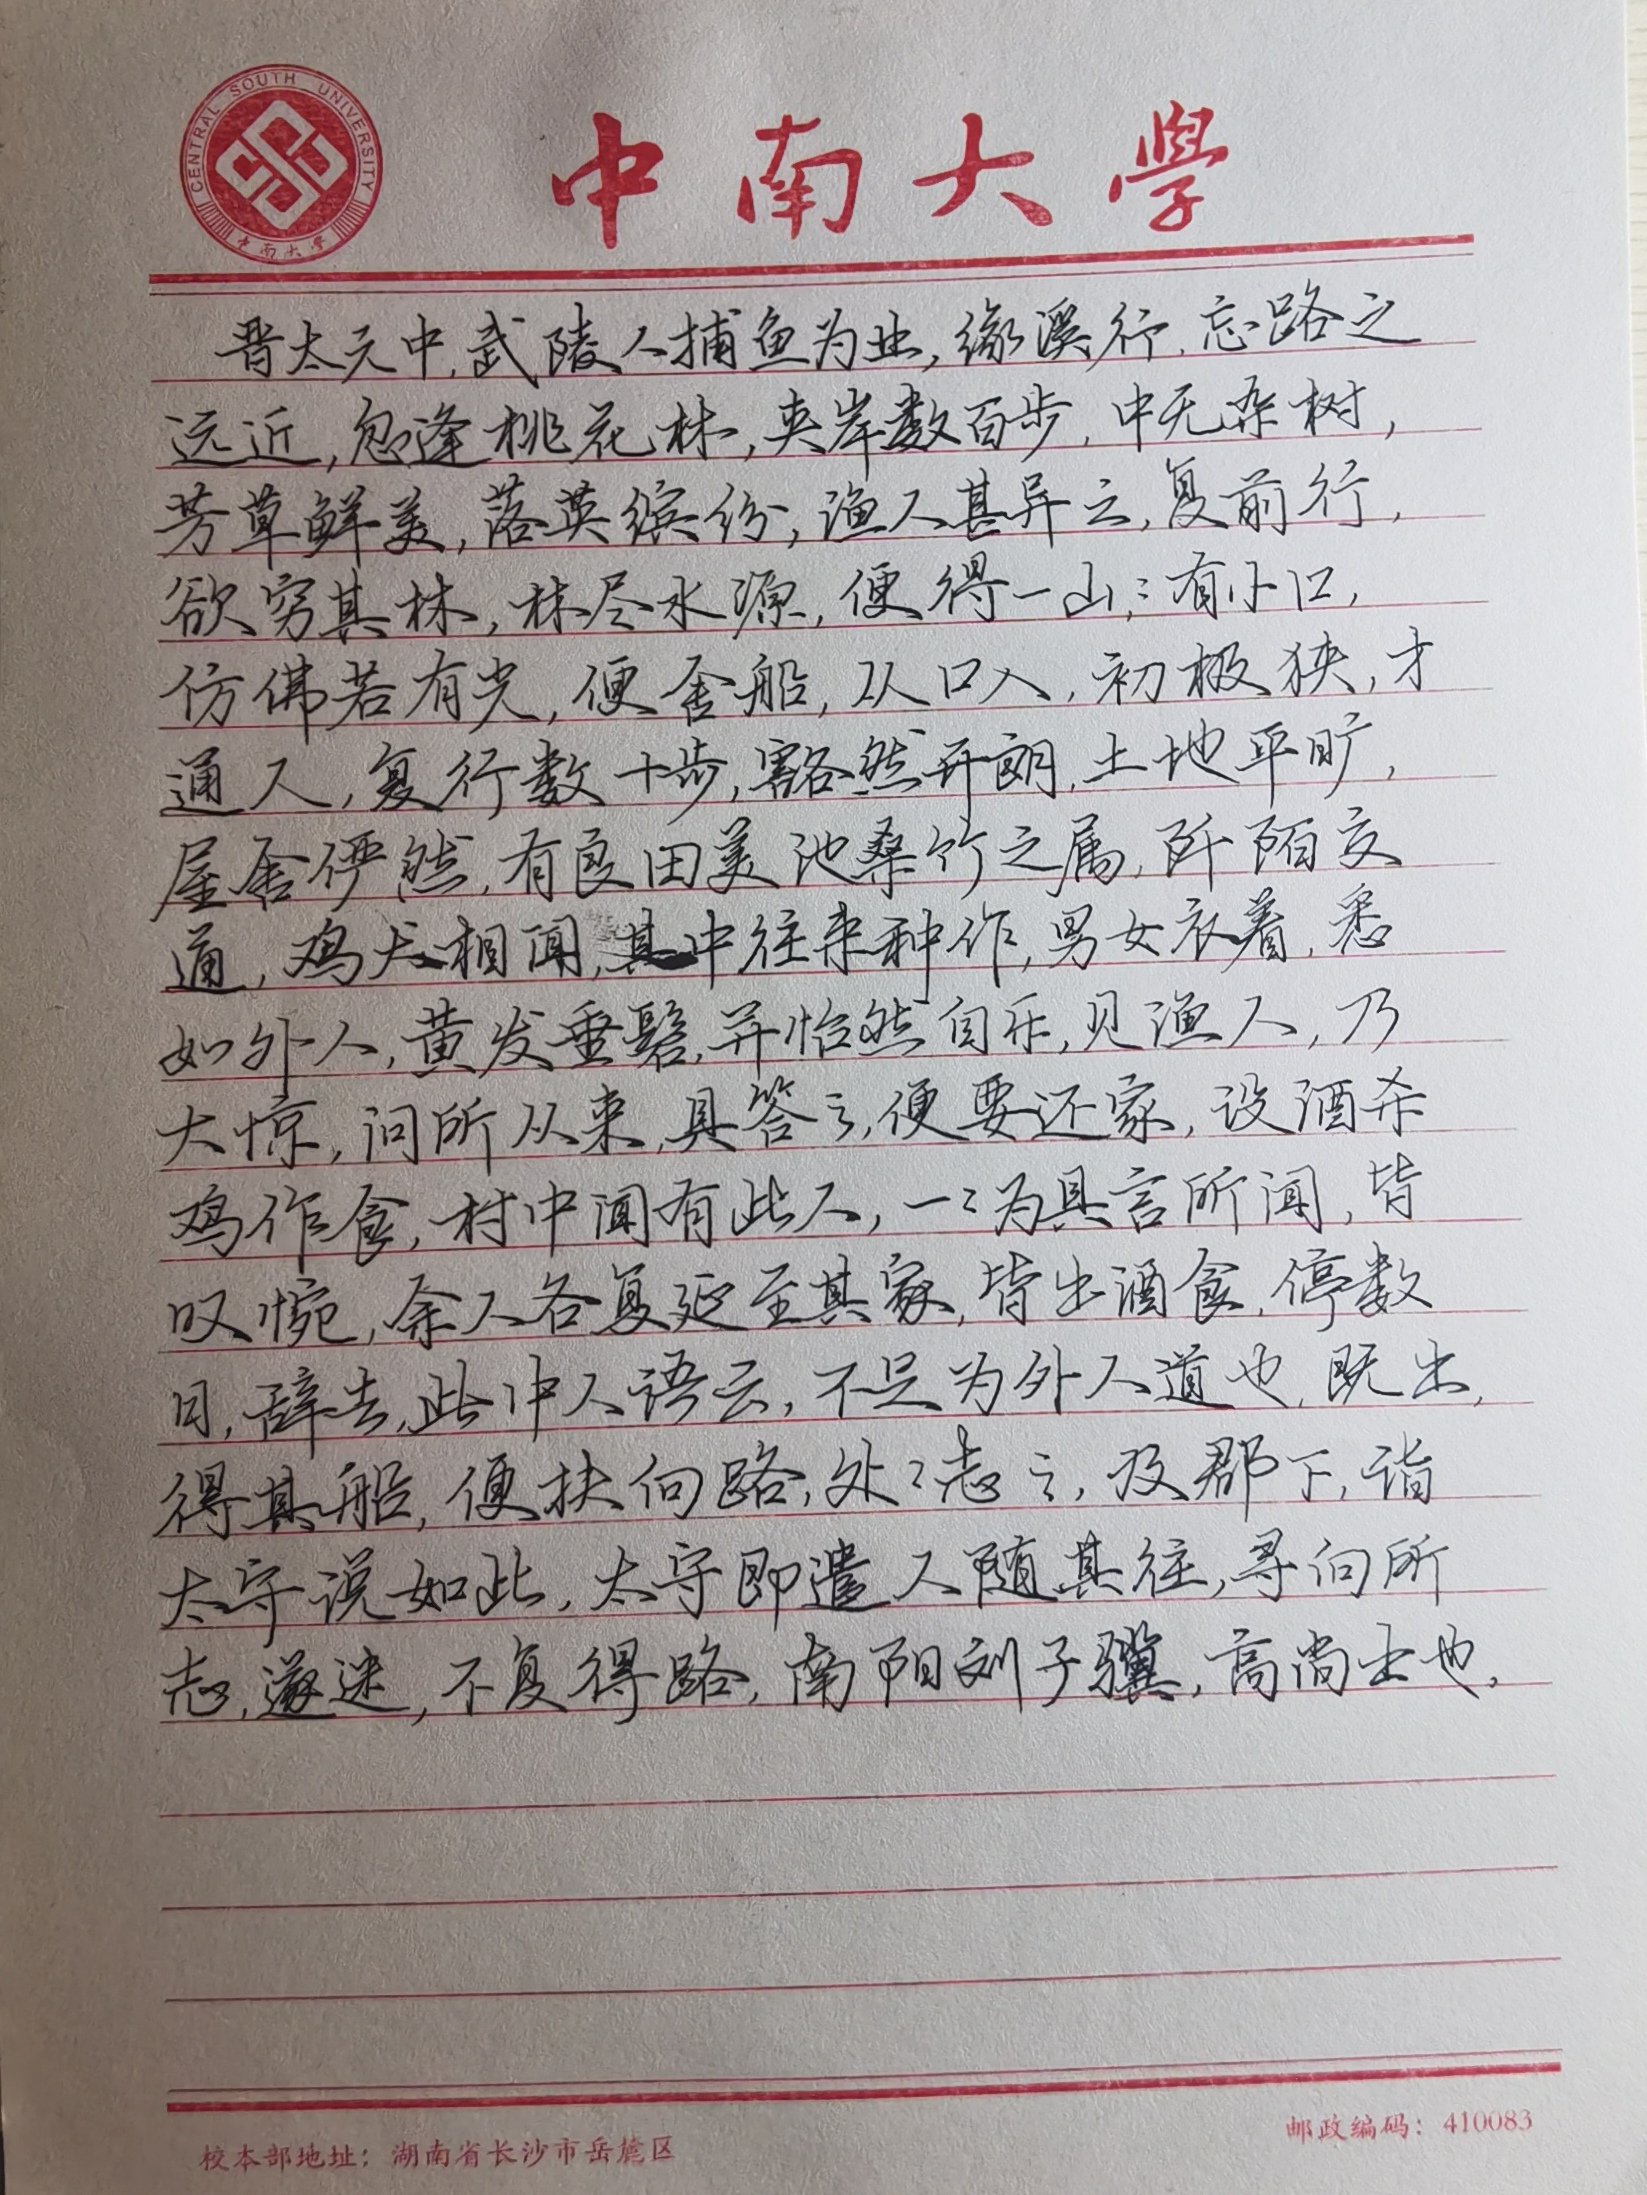 CENTRAL SOUTH UNIVERSITY
中南大学
中南大學
晋太元中,武陵人捕鱼为业,缘溪行,忘路之
远近,忽逢桃花林,夹岸数百步,中无杂树,
芳草鲜美,落英缤纷,渔人甚异之,复前行,
欲穷其林,林尽水源,便得一山,:有小口,
仿佛若有光,便舍船,从口入,初极狭,才
通人,复行数十步,豁然开朗,土地平旷,
屋舍俨然,有良田美池桑竹之属,阡陌交
通,鸡犬相闻,其中往来种作,男女衣着,悉
如外人,黄发垂髫,并怡然自乐,见渔人,乃
大惊,问所从来,具答之,便要还家,设酒杀
鸡作食,村中闻有此人,一:为具言所闻,皆
叹惋,余人各复延至其家,皆出酒食,停数
日,辞去,此中人语云,不足为外人道也,既出,
得其船,便扶向路,处:志之,及郡下,诣
太守说如此,太守即遣人随其往,寻向所
志,遂迷,不复得路,南阳刘子骥,高尚士也,
校本部地址：湖南省长沙市岳麓区
邮政编码：410083